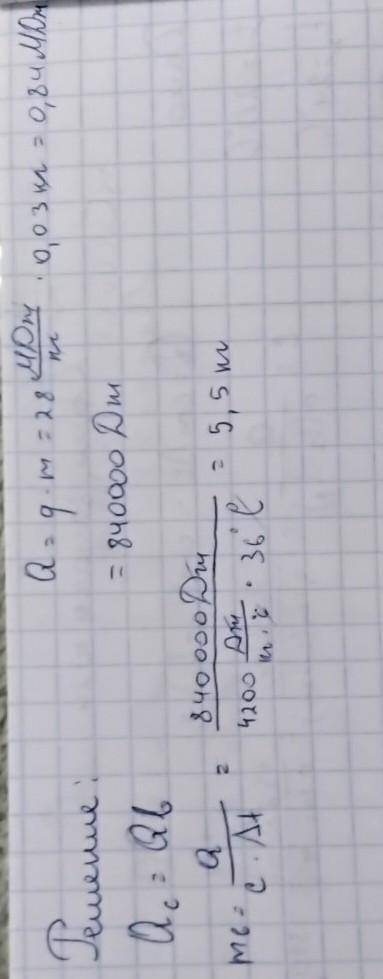 Решение:
Qс = Qв
Q = q · m = 28 МДж/кг · 0,03 кг = 0,84 МДж
= 840000 Дж
mв = Q / c · Δt = 840000 Дж / 4200 Дж/кг·°C · 36°C = 5,5 кг